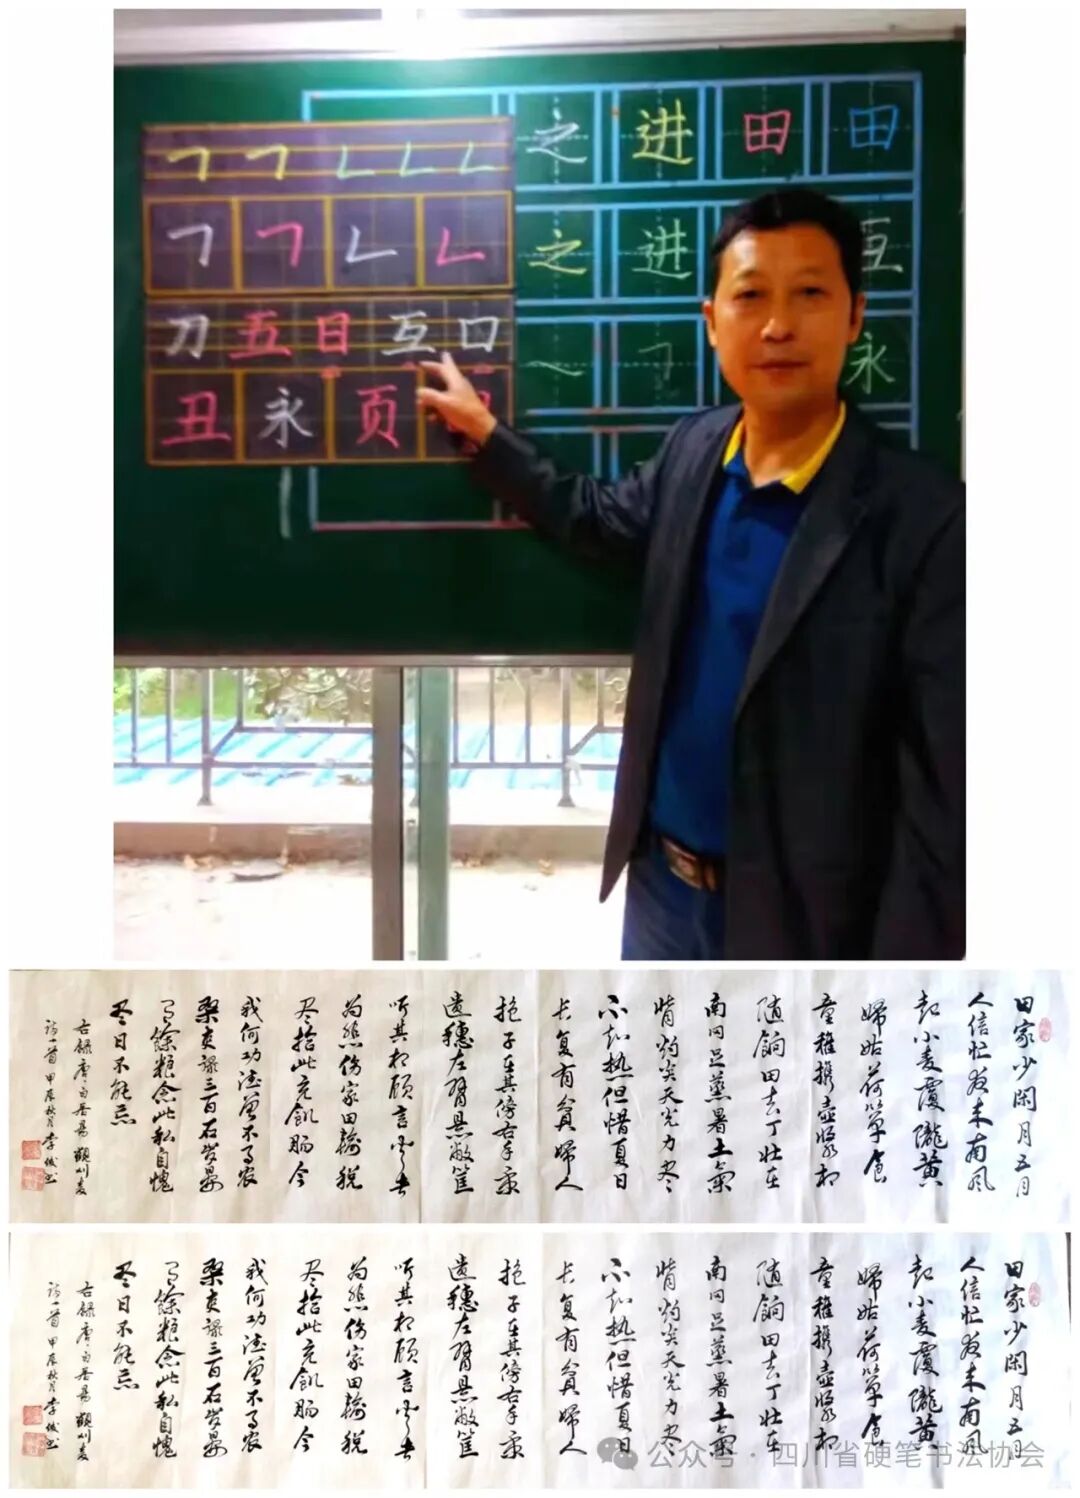 之进田田
之进互
永
刀五日互口
丑永页
田家少閑月五月
人倍忙夜来南風
起小麦覆隴黄
婦姑荷箪食
童稚携壺漿相
随餉田去丁壮在
南冈足蒸暑土氣
背灼炎天光力尽
不知热但惜夏日
长复有貧婦人
抱子在其傍右手秉
遗穗左臂悬敝筐
听其相顾言闻者
为悲伤家田输税
尽拾此充飢肠今
我何功德曾不事农
桑吏禄三百石岁晏
有餘粮念此私自愧
尽日不能忘
右録唐白居易觀刈麦
诗一首甲辰秋月李书
田家少閑月五月
人倍忙夜来南風
起小麦覆隴黄
婦姑荷箪食
童稚携壺漿相
随餉田去丁壮在
南冈足蒸暑土氣
背灼炎天光力尽
不知热但惜夏日
长复有貧婦人
抱子在其傍右手秉
遗穗左臂悬敝筐
听其相顾言闻者
为悲伤家田输税
尽拾此充飢肠今
我何功德曾不事农
桑吏禄三百石岁晏
有餘粮念此私自愧
尽日不能忘
右録唐白居易觀刈麦
诗一首甲辰秋月李书
公众号·四川省硬笔书法协会